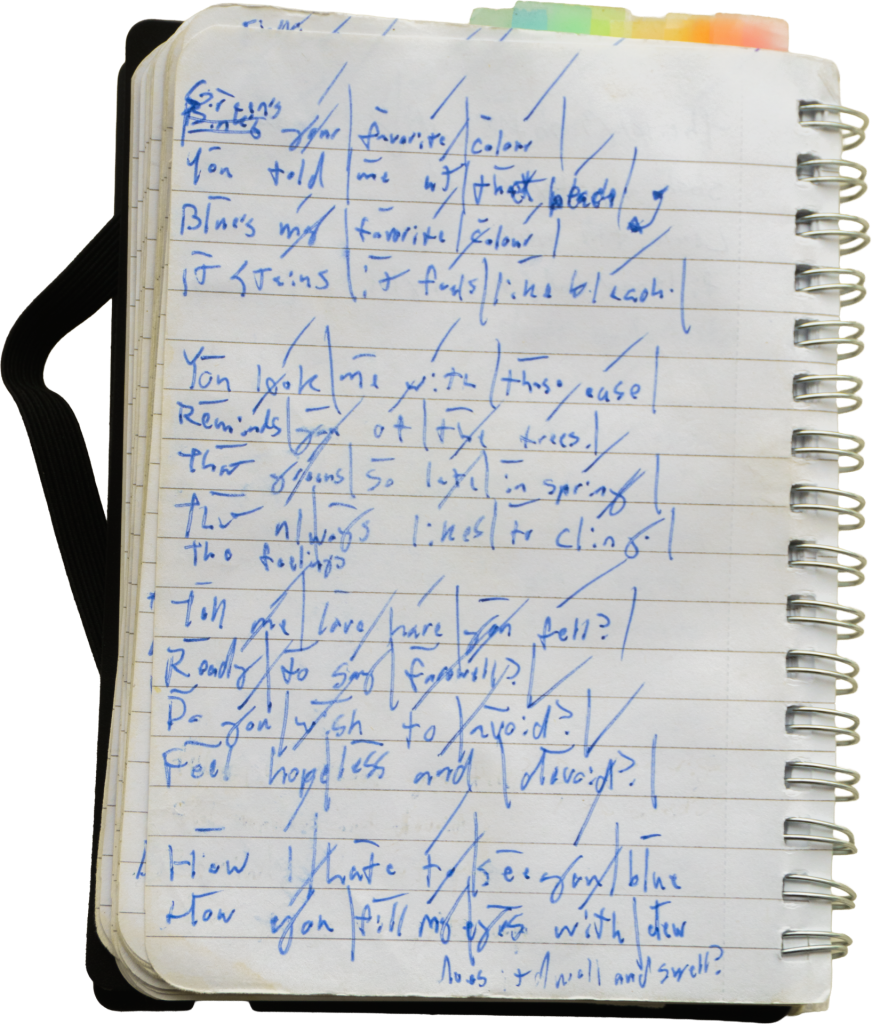 Green's
your favorite colour
You told me at that beach
Blue's my favorite colour
it stains it feels like bleach.
You look me with those ease
Reminds you of the trees.
That greens so late in spring
That always likes to cling.
the feelings
Tell me love have you fell?
Ready to say farewell?
Do you wish to avoid?
Feel hopeless and devoid?
How I hate to see you blue
How you fill my eyes with dew
to dwell and swell?